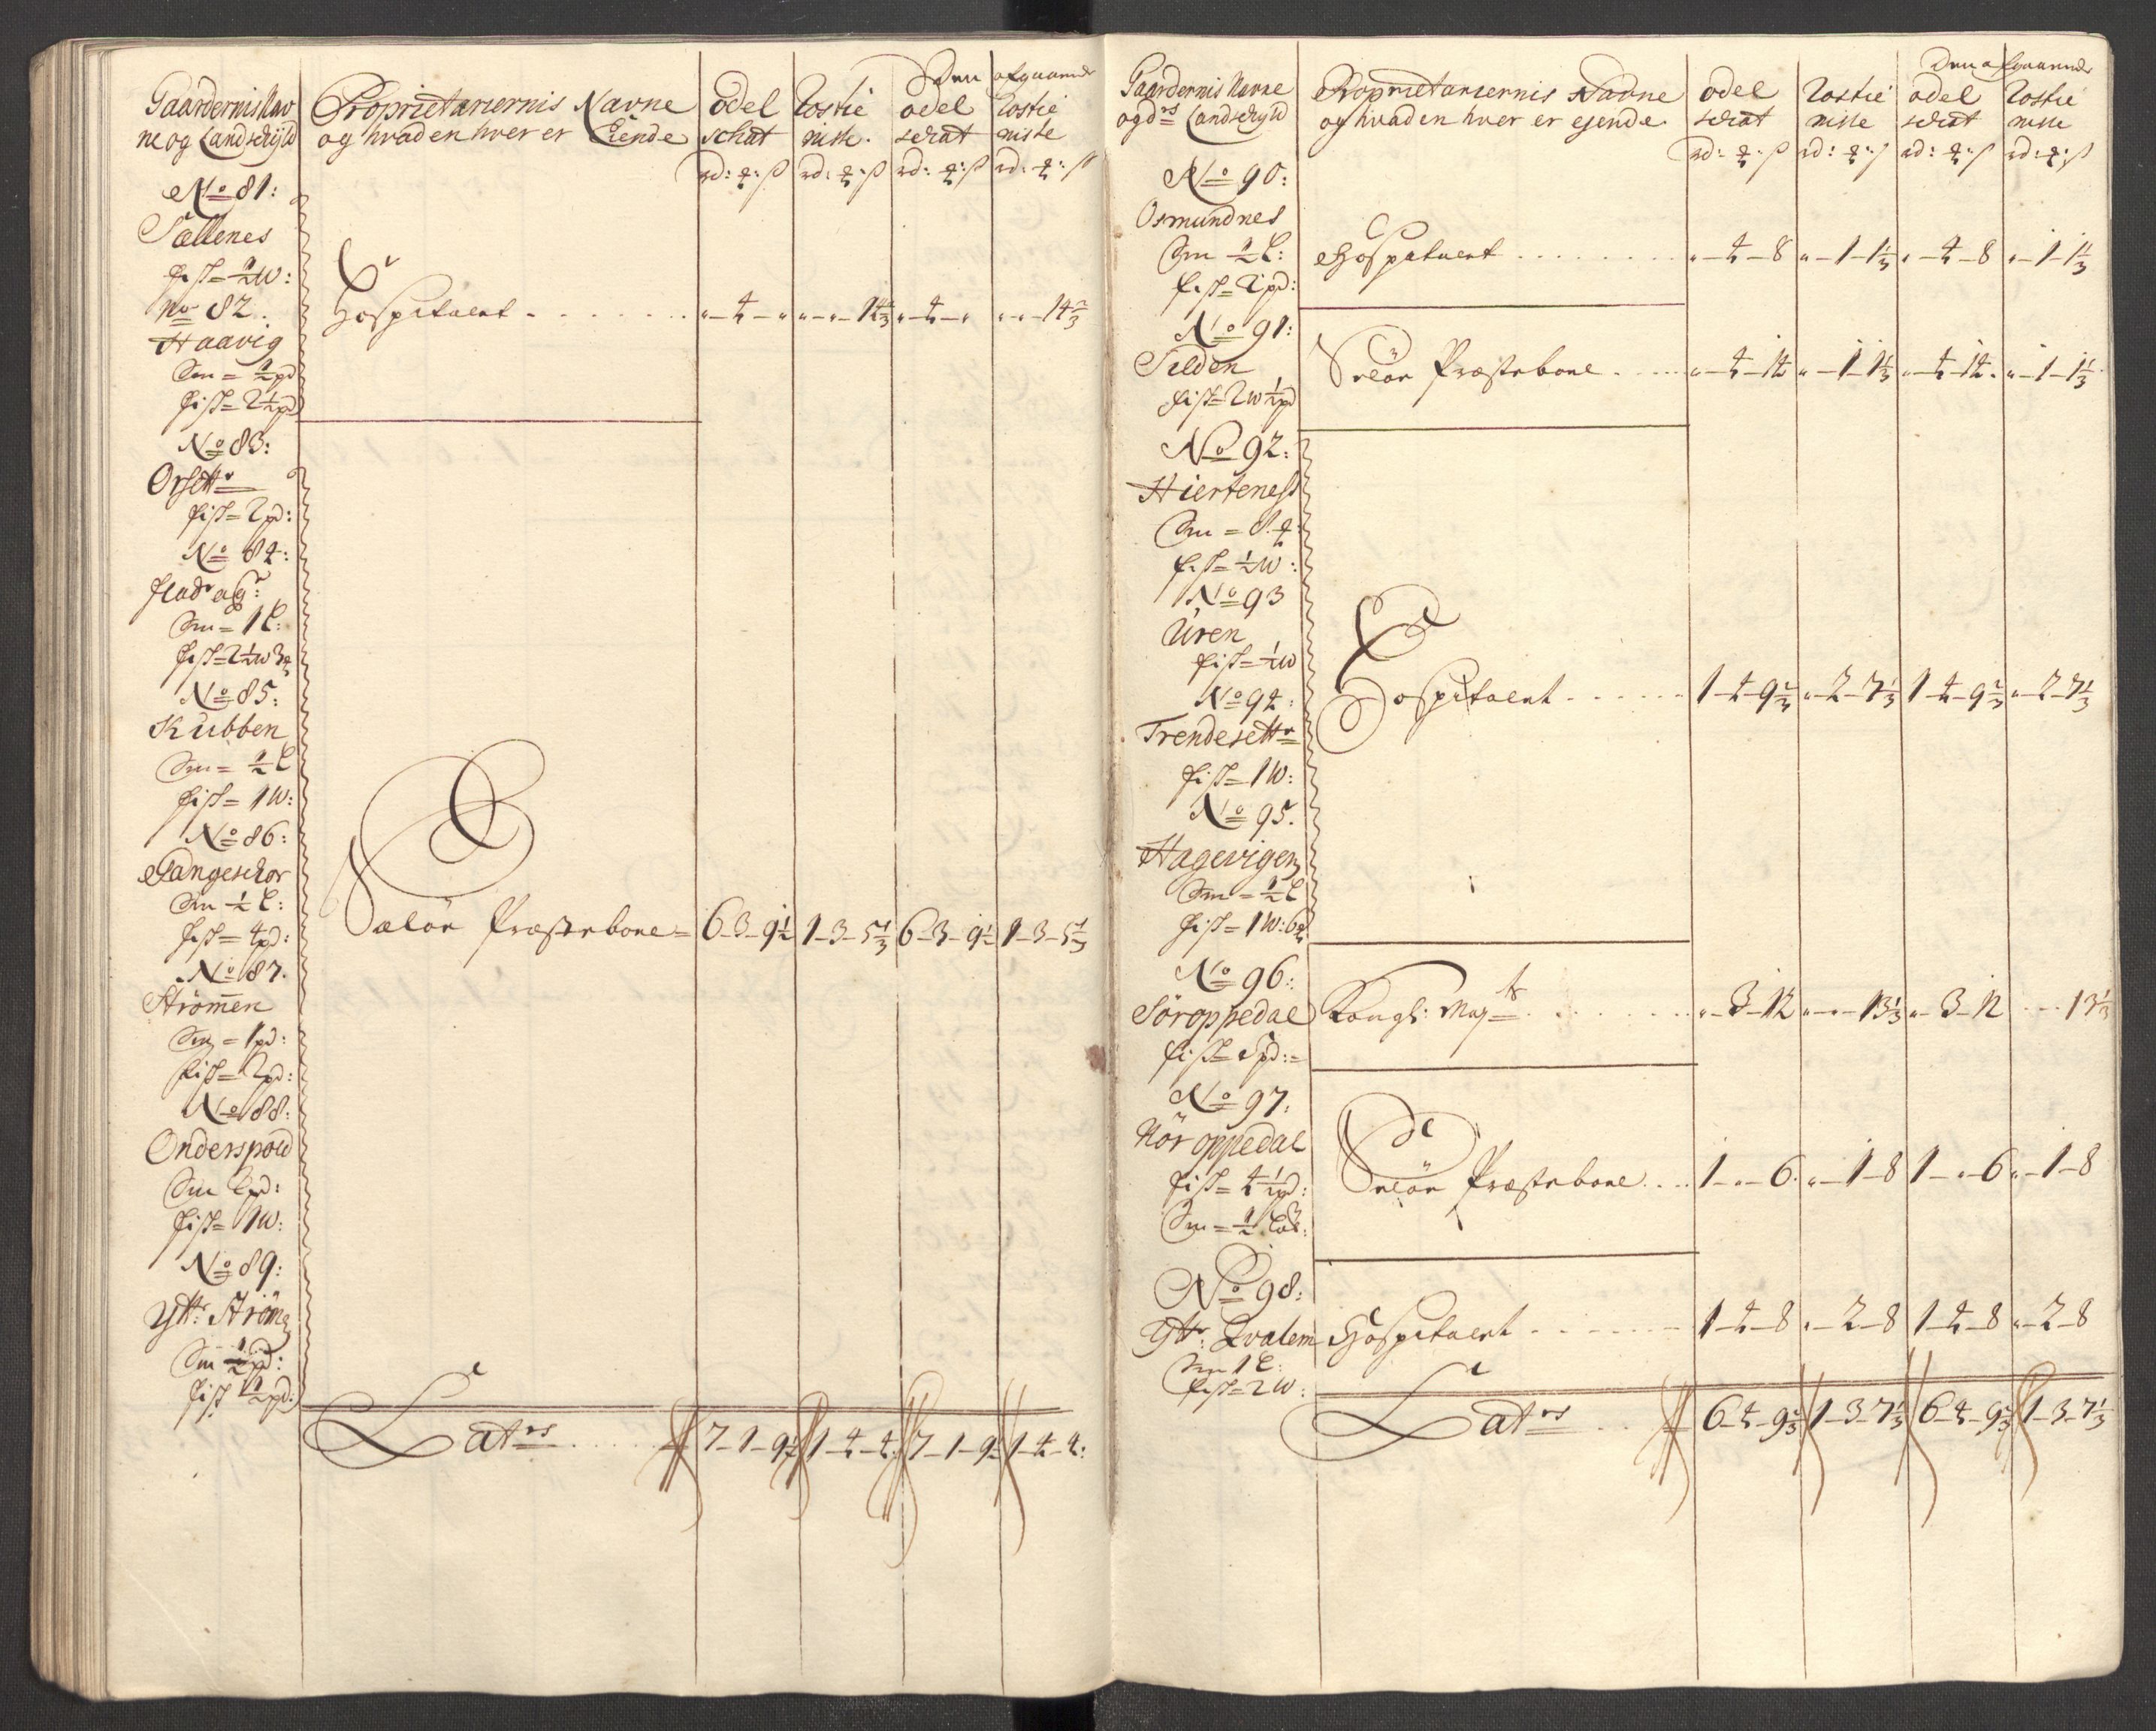 Gaardernis Nav
ne og Landschyld
Proprietariernis Navne
og hvad en hver er Eiende
odel
schat
rd: ß
Rostie
niste.
rd: ß
Den afgaaende
odel
schat
rd: ß
Rostie
niste
rd: ß
No 81:
Sællenes
fisk= ½ W:
No 82.
Haavig
Sm = ½ pd
fisk= 2½ pd
Hospitalet
No 83:
Orsettr
fisk= 2 pd:
No 84:
Sm = 1 L:
No 85:
Kubben
Sm = ½ L
fisk= 1 W:
No 86:
Sangeschor
Sm ½ L:
fisk= 4 pd:
No 87.
Strömen
Sm = 1 pd:
fisk= 2 pd:
No 88:
Onderspold
Sm 2 pd:
fisk= 1 W:
No 89:
Ytt: Ström
Sm ½ pd:
fisk 1½ pd:
Selör Præstebole = 6-3-9½ 1-3-5⅓ 6-3-9½ 1-3-5⅓
Lats 7-1-9½ 1-4-4 7-1-9½ 1-4-4:
Gaardernis Navne
og ds Landschyld
Proprietariernis Navne
og hvad en hver er ejende
odel
schat
rd: ß
Rostie
niste
rd: ß
Den afgaaende
odel
schat
rd: ß
Rostie
niste
rd: ß
No 90:
Osmundnes
Sm ½ L:
fisk= 2 pd:
Hospitalet "-4-8 "-1-1⅓ "-4-8 "-1-1⅓
No 91:
Silden
fisk= 2 W ½ pd
Selör Præstebole "-4-14 "-1-1⅓ "-4-14 "-1-1⅓
No 92:
Hiertenes
Sm = 8
fisk= ½ W:
No 93
Uren
fisk= ½ W
No 94:
Trendesettr
fisk= 1 W:
No 95.
Hagevigen
Sm = ½ L
fisk= 1 W: 6
Hospitalet 1-4-9⅔ "-2-7⅓ 1-4-9⅔ "-2-7⅓
No 96:
Söroppedal
fisk= 5 pd:
Kongl: Mayts "-3-12 "-"-13⅓ "-3-12 13⅓
No 97:
Nör oppedal
fisk= 4½ pd:
Sm = ½ Lau:
Selör Præstebole 1-"-6 "-1-8 1-"-6 "-1-8
No 98:
Yttr: Qvalem
Sm 1 L:
fisk= 2 W:
Hospitalet 1-4-8 "-2-8 1-4-8 "-2-8
Lats 6-4-9⅔ 1-3-7⅓ 6-4-9⅔ 1-3-7⅓